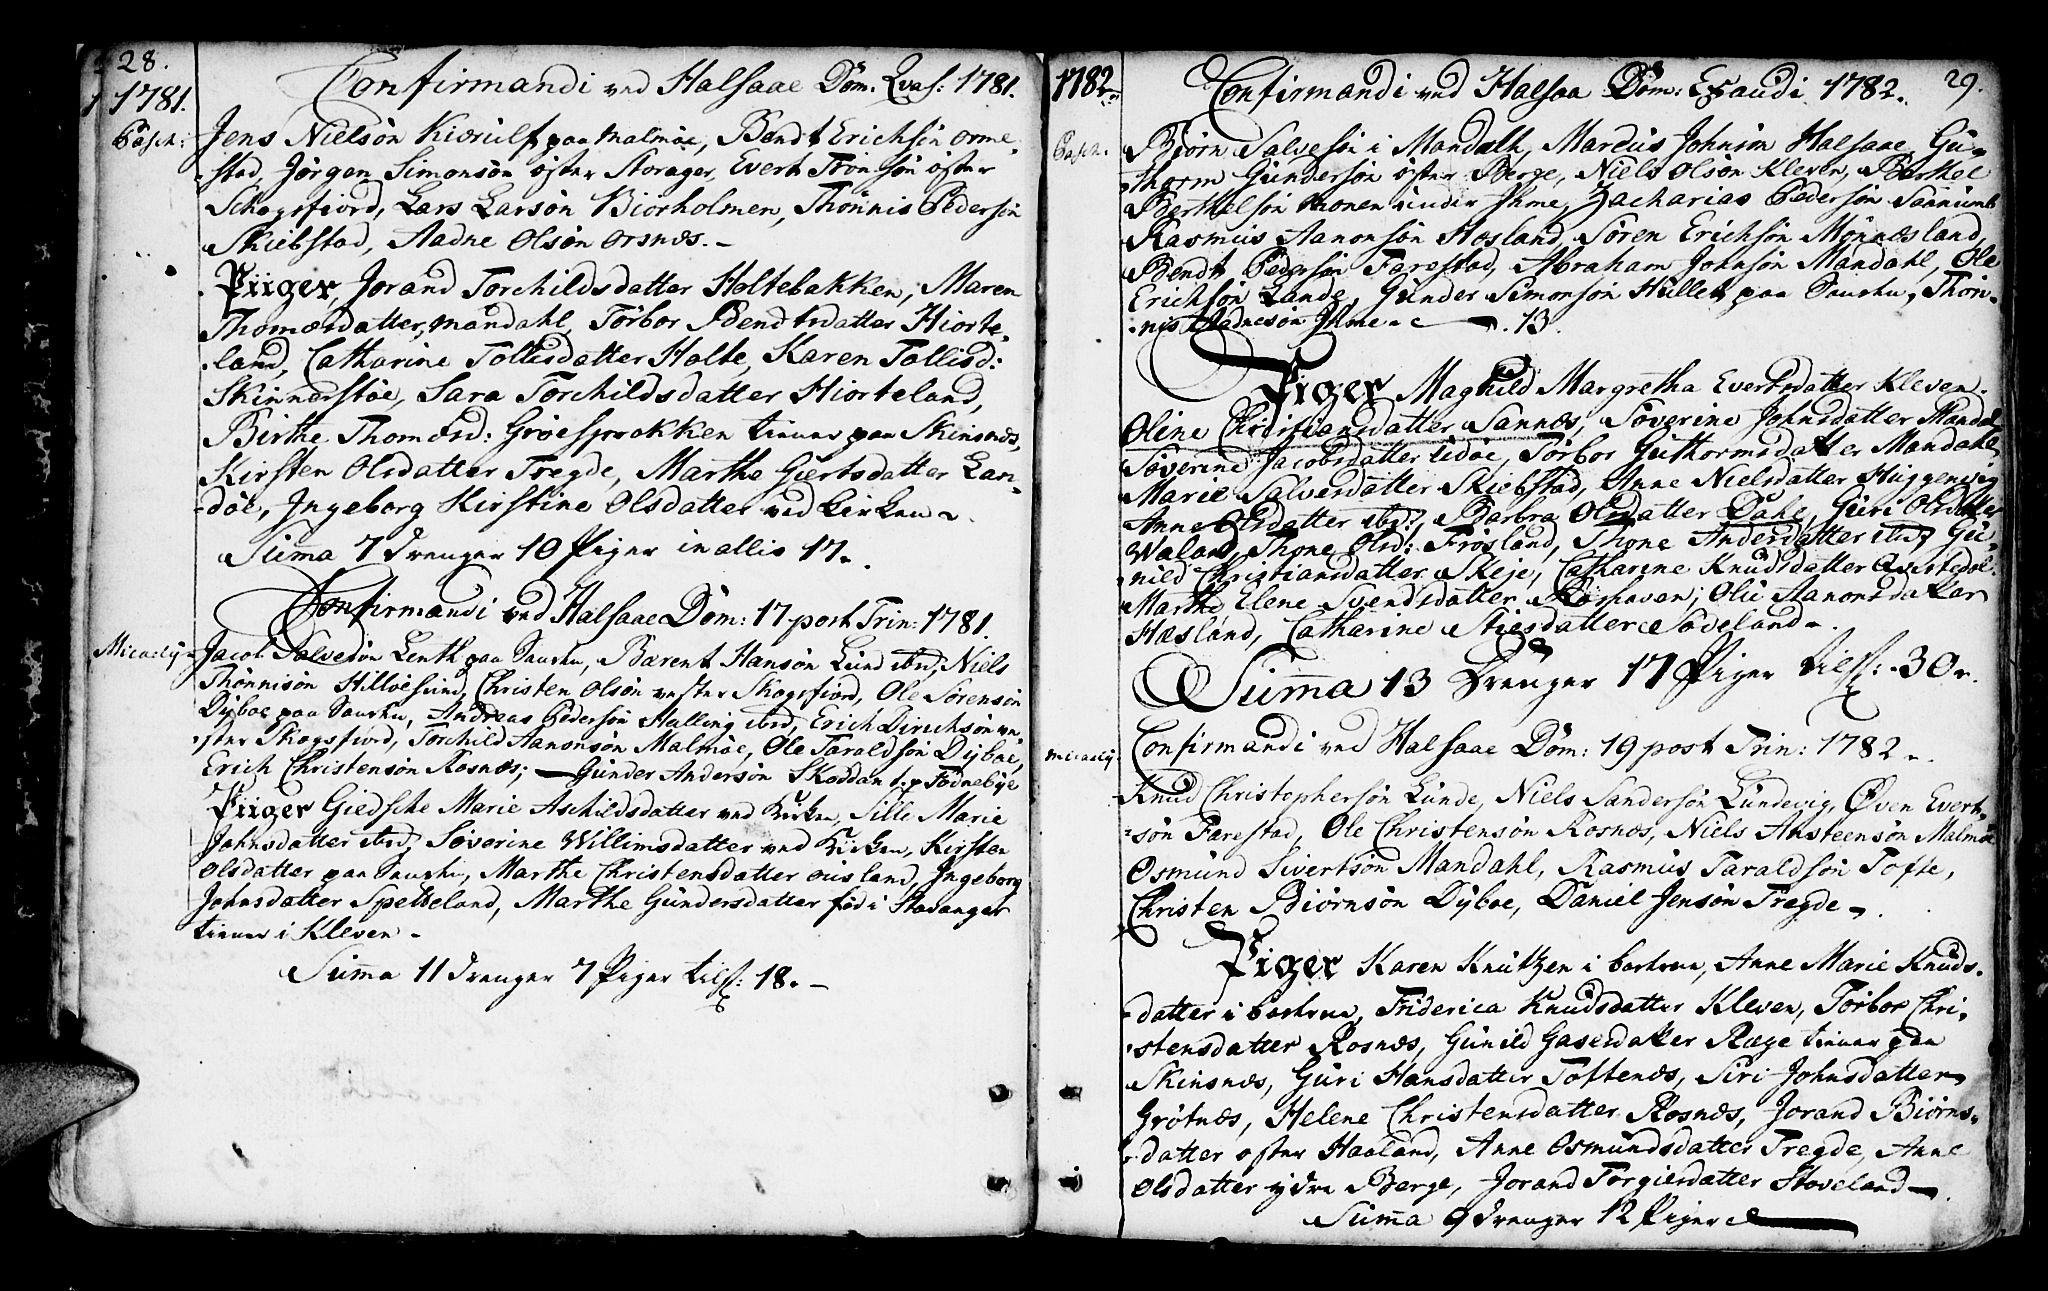 28.
1781.
Pasch:
Confirmandi ved Halsaae Dom. Qvas: 1781.
Jens Nielsøn Kiærulf paa Malmøe, Bendt Erichsøn Orme-
stad, Jørgen Simonsøn øster Storager, Evert Tronsøn øster
Schogsfiord, Lars Larsøn Biorholmen, Thønnis Pedersøn
Skiebstad, Aadne Olsøn Orsnæs.-
Piiger, Jorand Torchildsdatter Holtebakken, Maren
Thomæsdatter, Mandahl, Torbor Bendtsdatter Hiorte-
land, Catharine Tollisdatter Holte, Karen Tollisd:
Skinnerstøe, Sara Torchildsdatter Hiorteland,
Birthe Thomæsd: Grøesprokken tiener paa Skinsnæs,
Kirsten Olsdatter Tregde, Marthe Giertsdatter Lan-
døe, Ingeborg Kirstine Olsdatter ved Kirken.
Suma 7 drenger 10 Piger in allis 17.
Confirmandi ved Halsaae Dom: 17 post Trin: 1781.
Micaelij
Jacob Salvesøn Lenth paa, Bærent Hansøn Lund ibid, Niels
Thønnisøn Hilløesund, Christen Olsøn vester Skogsfiord, Ole Sørensøn
Dyboe paa, Andreas Pedersøn Halling ibid, Erich Dirichsøn ve-
ster Skogsfiord, Torchild Aanonsøn Malmøe, Ole Taraldsøn Dyboe,
Erich Christensøn Rosnæs; Gunder Andersøn Skoddan Fodnebye
Piiger Giedsche Marie Aschildsdatter ved Kirken, Sille Marie
Johnsdatter ibid, Søverine Willimsdatter ved Kirken, Kirsten
Olsdatter paa, Marthe Christensdatter Ouisland, Ingeborg
Johnsdatter Spetteland, Marthe Gundersdatter fød i Stavanger
tiener i Kleven -
Suma 11 drenger 7 Piger tils: 18. -
1782
29.
Pasch.
Confirmandi ved Halsaa Dom: Exaudi 1782.
Biørn Salvesøn i Mandall, Marcus Johnsøn Halsaae, Gu-
thorm Gundersøn øster Berge, Niels Olsøn Kleven, Berthel
Berthelsøn Monen under Ihme, Zacharias Pedersøn
Rasmus Aanonsøn Hæsland, Søren Erichsøn Mønnæsland,
Bendt Pedersøn Farestad, Abraham Johnsøn Mandahl, Ole
Erichsøn Lande, Gunder Simonsøn Hullet paa, Thøn-
nis Aadnesøn Ihme. 13.
Piger Maghild Margretha Evertsdatter Kleven.
Oline Christiansdatter Sannæs, Søverine Johnsdatter Mandal,
Søverine Jacobsdatter Udøe, Torbor Guthormsdatter Mandahl,
Marie Salvesdatter Skiebstad, Anne Nielsdatter Huggenvig
Anne Olsdatter ibid:, Barbra Olsdatter Dahl, Guri Olsdatter
Waland, Thone Olsd: Frøsland, Thone Andersdatter ibid, Gu-
nild Christiansdatter Skeje, Catharine Knudsdatter
Marthe Elene Svendsdatter, Olu Aanonsdatter
Hæsland, Catharine Stiesdatter Sodeland.
Suma 13 Drenger 17 Piger tils: 30.
Micaelij.
Confirmandi ved Halsaae Dom: 19 post Trin: 1782.
Knud Christophersøn Lunde, Niels Sandersøn Lundevig, Øven Evert-
søn Farestad, Ole Christensøn Rosnæs, Niels Ansteensøn Malmøe
Osmund Sivertsøn Mandahl, Rasmus Taraldsøn Tofte,
Christen Biørnsøn Dyboe, Daniel Jensøn Tregde.
Piger Karen Knutzen i, Anne Marie Knuds-
datter i, Friderica Knudsdatter Kleven, Torbor Chri-
stensdatter Rosnæs, Gunild Gasesdatter Ræge tiener paa
Skinsnæs, Guri Hansdatter Toftenæs, Siri Johnsdatter
Grøtnæs, Helene Christensdatter Rosnæs, Jorand Biørns-
datter øster Haaland, Anne Osmundsdatter Tregde, Anne
Olsdatter ydre Berge, Jorand Torgiersdatter Stoveland.
Suma 9 drenger 12 Piger